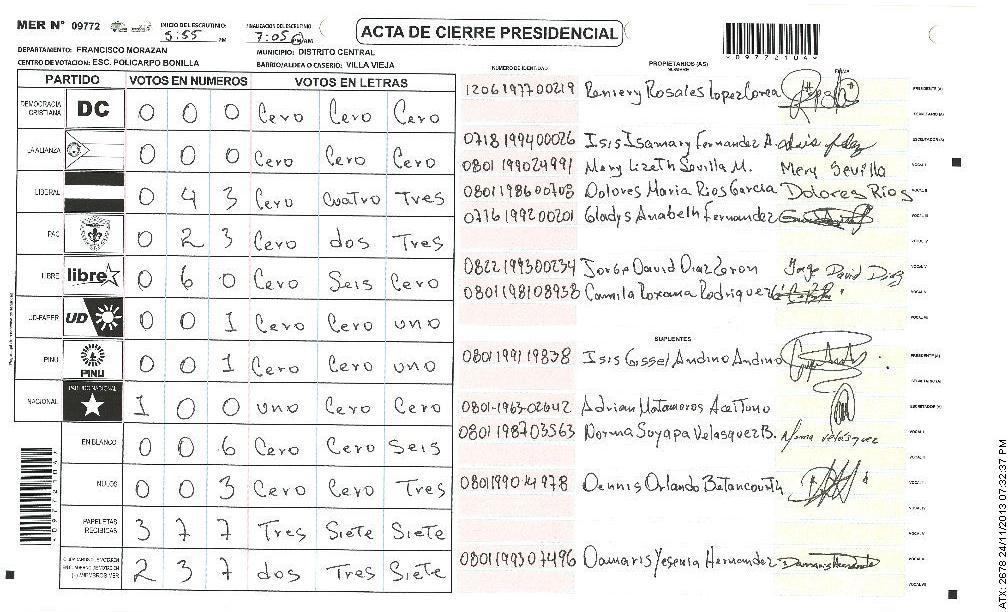 MER Nº 09772 INICIO DEL ESCRUTINIO: 5:55 PM FINALIZACION DEL ESCRUTINIO 7:05 PM/AM ACTA DE CIERRE PRESIDENCIAL
DEPARTAMENTO: FRANCISCO MORAZAN MUNICIPIO: DISTRITO CENTRAL
CENTRO DE VOTACION: ESC. POLICARPO BONILLA BARRIO/ALDEA O CASERIO: VILLA VIEJA
PARTIDO VOTOS EN NUMEROS VOTOS EN LETRAS
DEMOCRACIA CRISTIANA DC 0 0 0 Cero Cero Cero
LA ALIANZA 0 0 0 Cero Cero Cero
LIBERAL 0 4 3 Cero Cuatro Tres
PAC 0 2 3 Cero dos Tres
LIBRE libre 0 6 0 Cero Seis Cero
UD-FAPER UD 0 0 1 Cero Cero uno
PINU PINU 0 0 1 Cero Cero uno
NACIONAL PARTIDO NACIONAL 1 0 0 uno Cero Cero
EN BLANCO 0 0 6 Cero Cero Seis
NULOS 0 0 3 Cero Cero Tres
PAPELETAS RECIBIDAS 3 7 7 Tres Siete Siete
2 3 7 dos Tres Siete
NUMERO DE IDENTIDAD PROPIETARIOS (AS) NOMBRE FIRMA
1206197700219 Reniery Rosales Lopez Corea PRESIDENTE (A)
SECRETARIO (A)
0718199400026 Isis Isamary Fernandez A. ESCRUTADOR (A)
0801199024991 Mery Lizeth Sevilla M. Mery Sevilla VOCAL I
0801198600703 Dolores Maria Rios Garcia Dolores Rios VOCAL II
0716199200201 Gladys Anabeth Fernandez VOCAL III
VOCAL IV
0822199300234 Jorge David Diaz Ceron Jorge David Diaz VOCAL V
0801198108938 Camila Roxana Rodriguez VOCAL VI
VOCAL VII
SUPLENTES
0801199119838 Isis Gissel Andino Andino PRESIDENTE (A)
SECRETARIO (A)
0801-1963-02642 Adrian Matamoros Aceituno ESCRUTADOR (A)
0801198703563 Norma Suyapa Velasquez B. Norma Velasquez VOCAL I
VOCAL II
0801199014978 Dennis Orlando Betancourth VOCAL III
VOCAL IV
VOCAL V
0801199307496 Damaris Yesenia Hernandez VOCAL VI
VOCAL VII
ATX: 2678 24/11/2013 07:32:37 PM